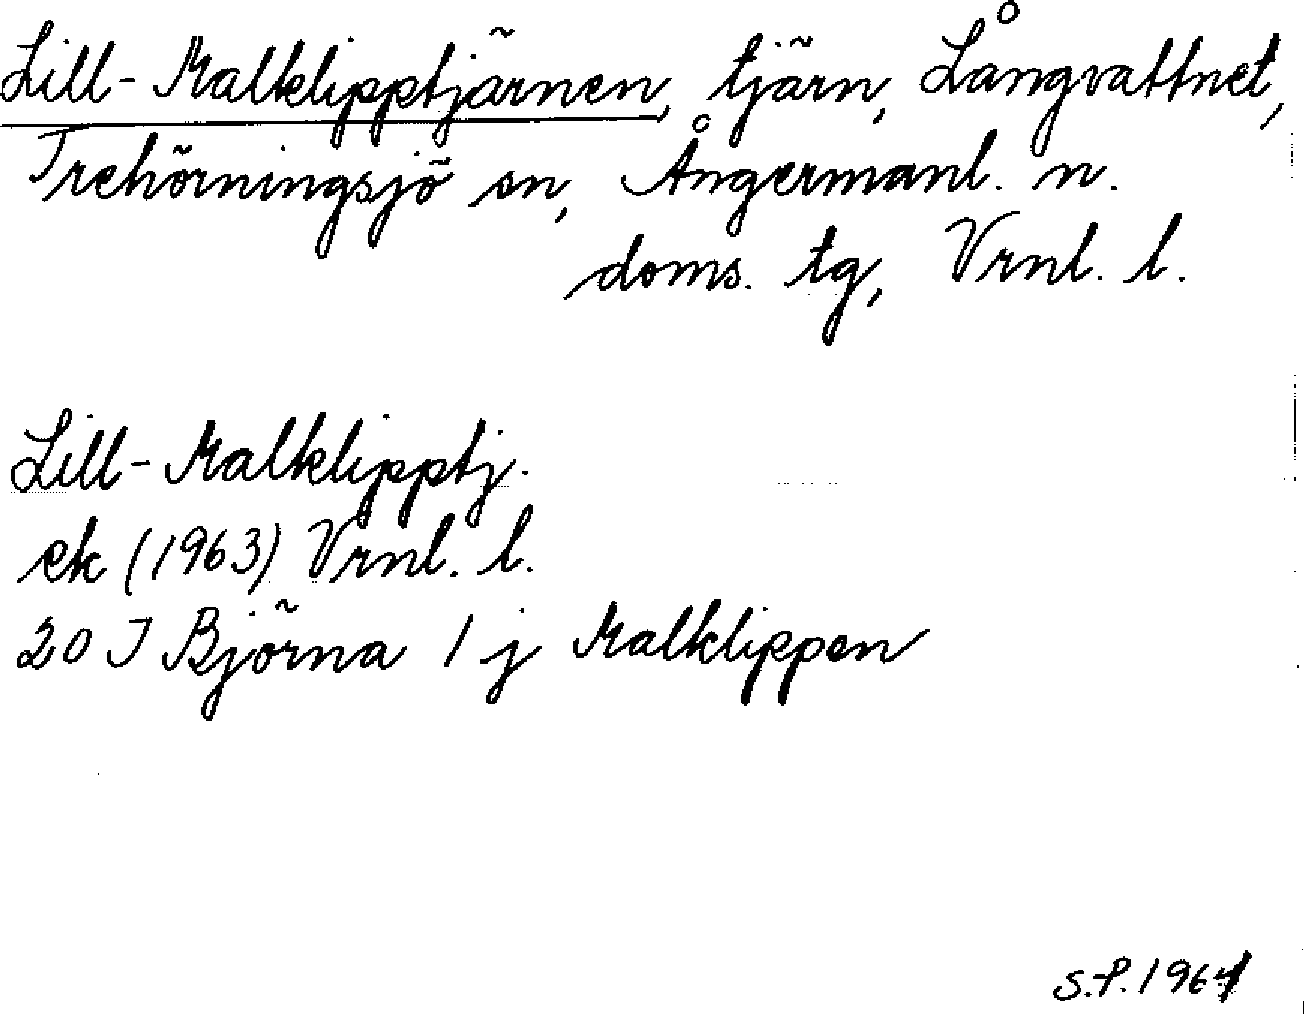 Lill-Malklipptjärnen, tjärn, Långvattnet,
Trehörningsjö sn, Ångermanl. n.
doms. tg, Vrnl. l.
Lill-Malklipptj.
ek (1963) Vrnl. l.
20 J Björna 1 j Malklippen
S.P. 1964